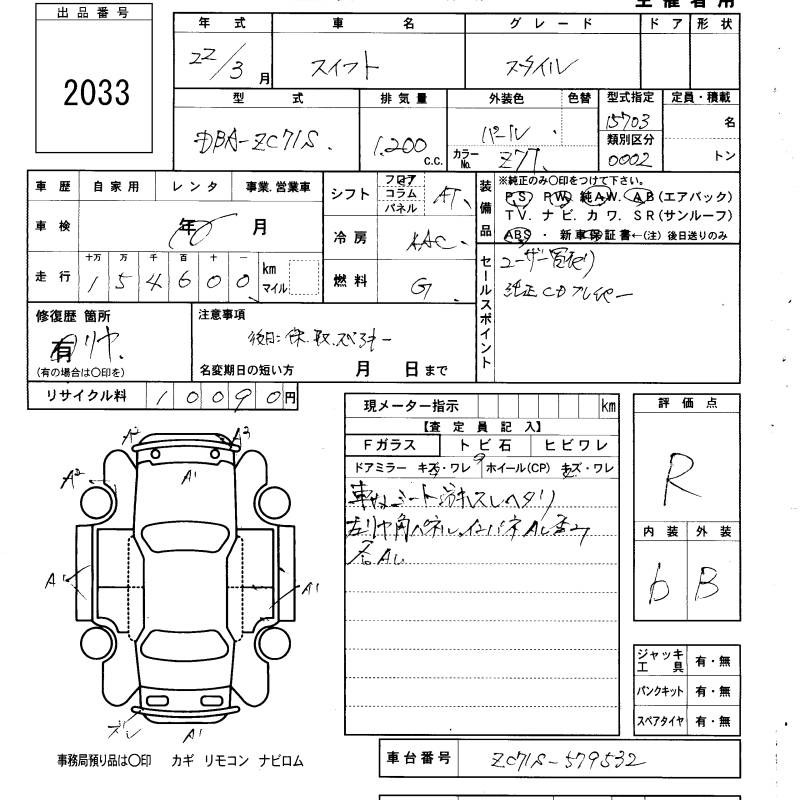 主催者用
出品番号
2033
年式 車名 グレード ドア 形状
22/3月 スイフト スタイル
型式 排気量 外装色 色替 型式指定 定員・積載
DBA-ZC71S. 1.200 c.c. パール カラーNo. Z7T. 15703 名
類別区分
0002 トン
車歴 自家用 レンタ 事業.営業車
車検 年 月
走行 十万 万 千 百 十 一
1 5 4 6 0 0 km マイル
シフト フロア コラム パネル AT.
冷房 AAC.
燃料 G.
装備品 ※純正のみ〇印をつけて下さい。
PS) PW) 純AW. AB (エアバック)
TV. ナビ. カワ. SR (サンルーフ)
ABS ・ 新車保証書←(注) 後日送りのみ
セールスポイント
ユーザー買取り
純正CDプレイヤー
修復歴 箇所
有
(有の場合は〇印を)
注意事項
名変期日の短い方 月 日まで
リサイクル料 1 0 0 9 0 円
現メーター指示 km
【査定員記入】
Fガラス トビ石 ヒビワレ
ドアミラー キズ・ワレ ホイール(CP) キズ・ワレ
評価点
R
内装 外装
b B
A2 A3
A1
A2
A1
A1
A1
事務局預り品は〇印 カギ リモコン ナビロム
ジャッキ工具 有・無
パンクキット 有・無
スペアタイヤ 有・無
車台番号 ZC71S-579532